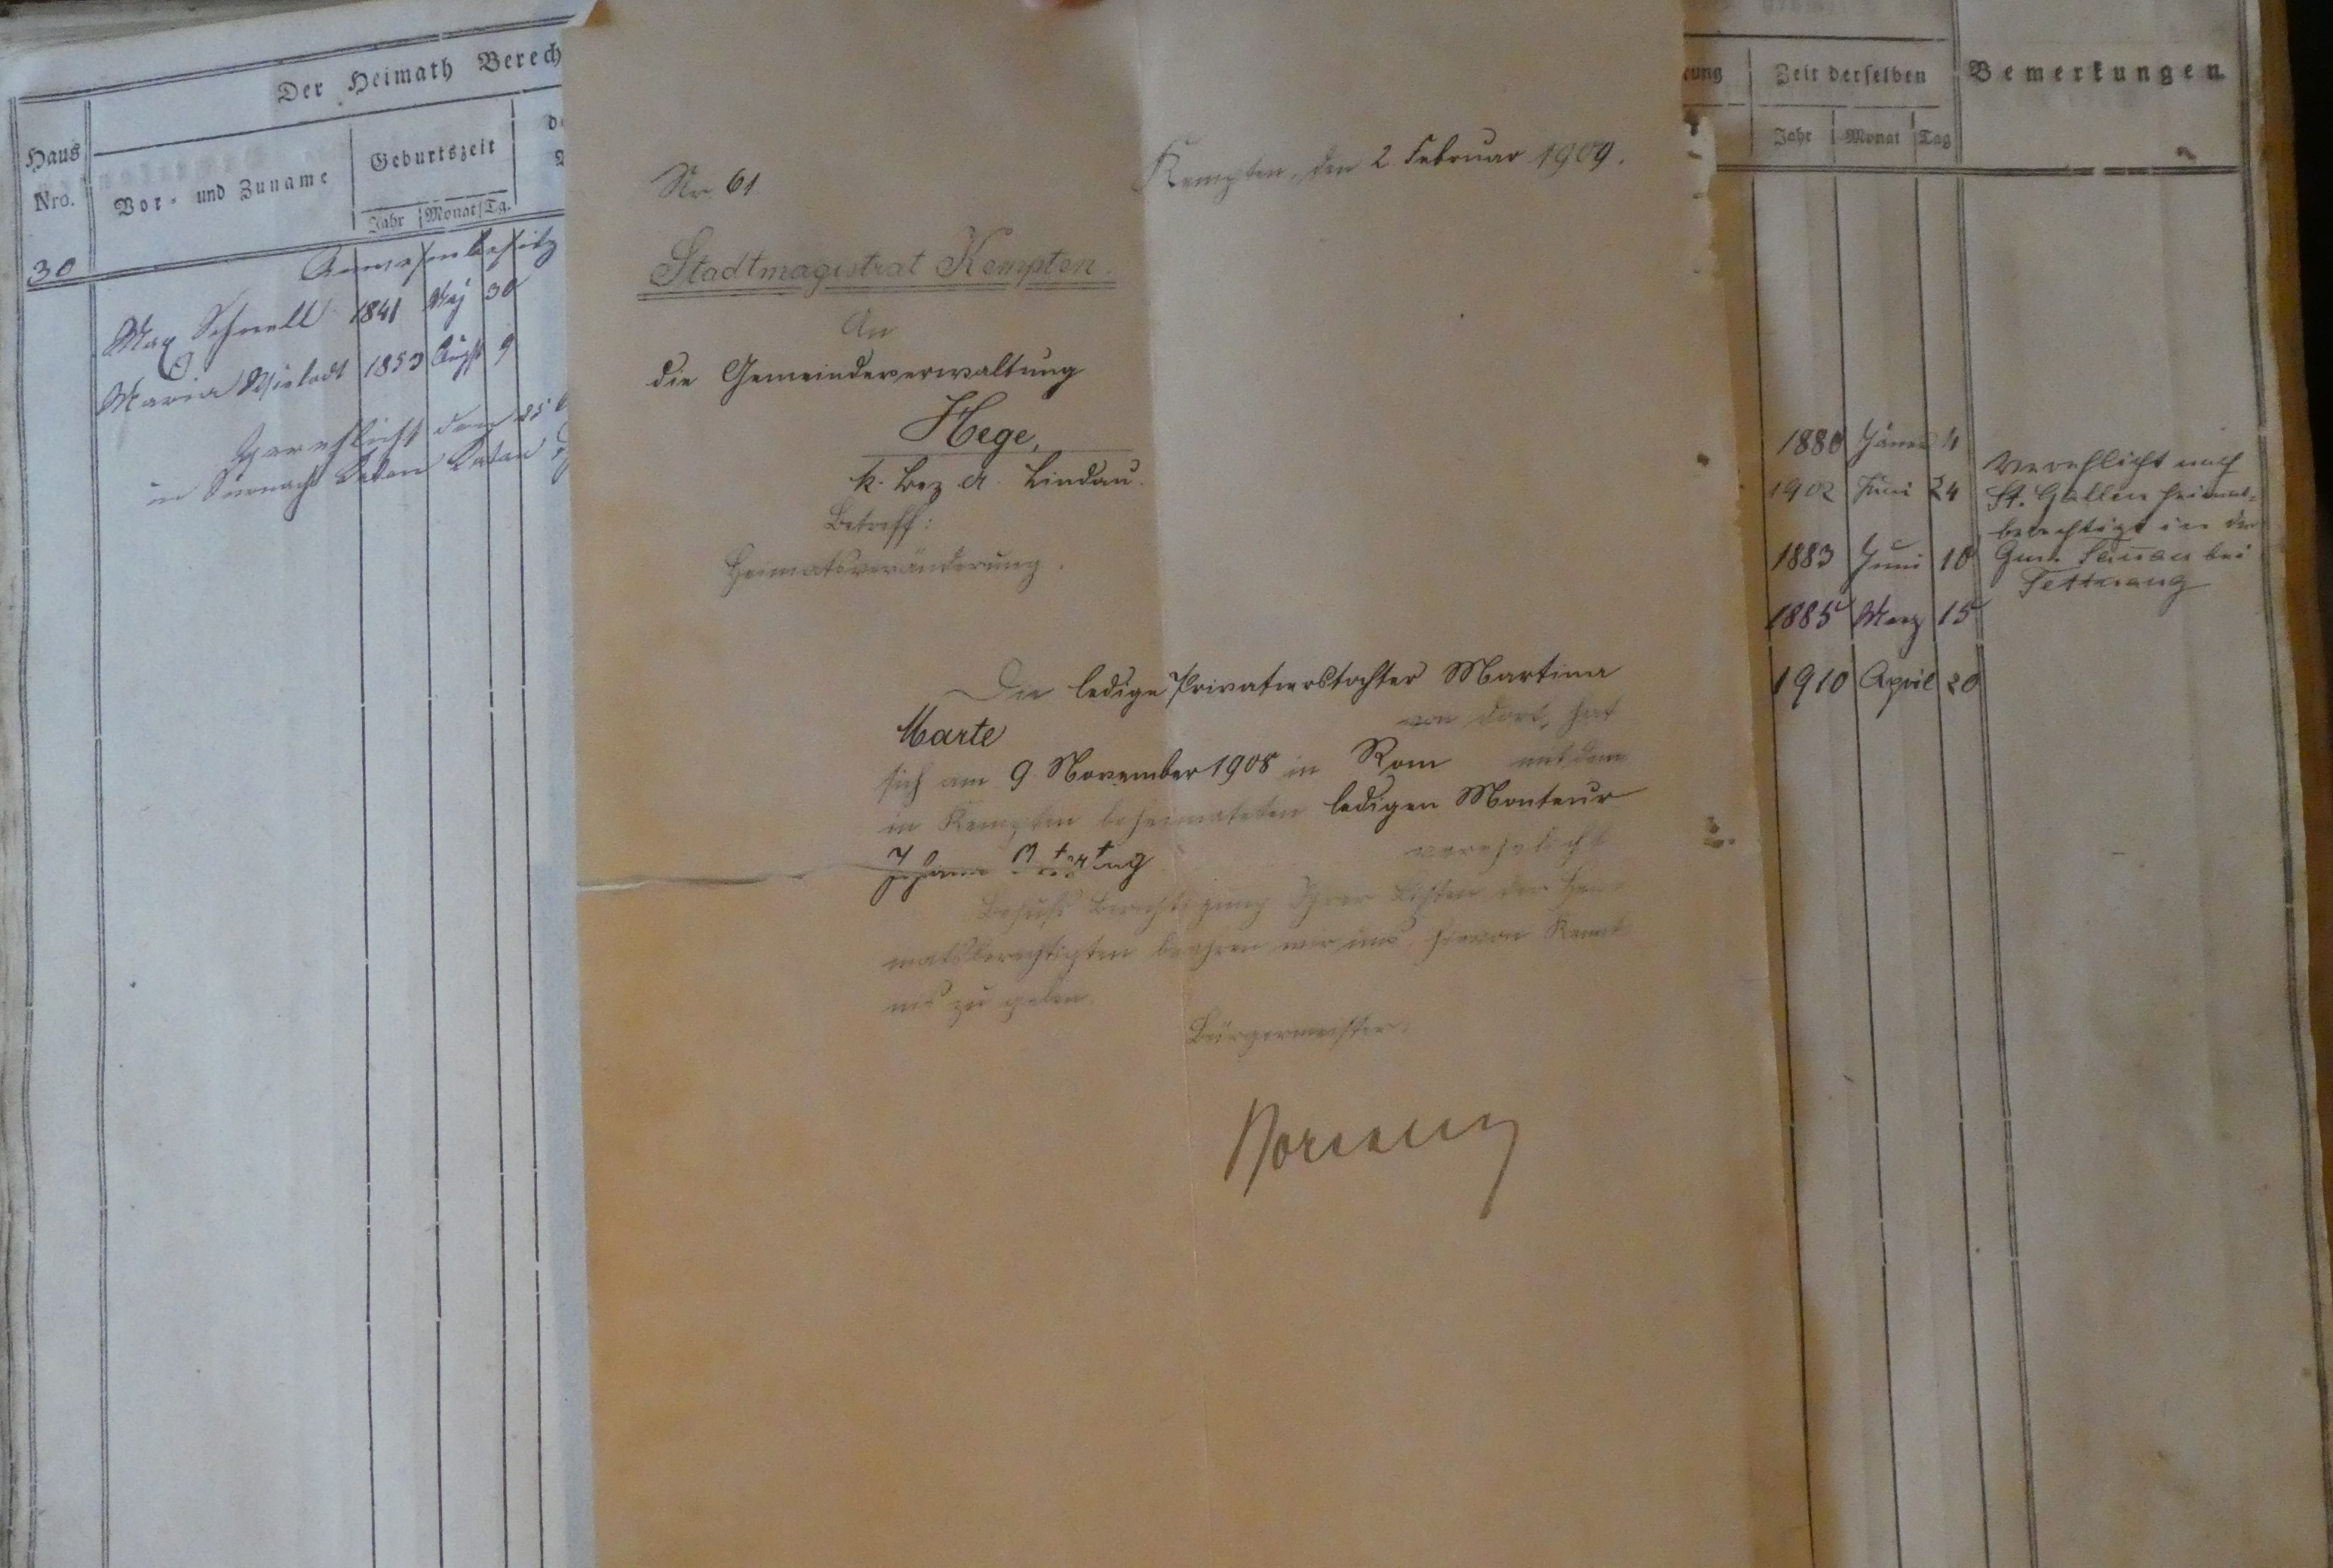 Der Heimath Berech
Haus
Nro.
Vor- und Zuname
Geburtszeit
Jahr Monat Tg.
30
Anwesenbesitz
Max Schnell 1841 Maj 30
Maria 1853 Augst 9
Verehlicht den 25
in
Nr. 61.
Kempten, den 2. Februar 1909.
Stadtmagistrat Kempten.
An
die Gemeindeverwaltung
Hege,
k. Bez. A. Lindau.
Betreff:
Heimatsveränderung.
Die ledige Privatierstochter Martina
Marte von dort, hat
sich am 9. November 1908 in Rom mit dem
in Kempten beheimateten ledigen Monteur
Johann verehelicht.
Behufs Berichtigung Ihrer Listen der Hei-
matsberechtigten beehren wir uns, hievon Kennt-
nis zu geben.
Bürgermeister:
ung
Zeit derselben
Bemerkungen
Jahr Monat Tag
1880 Jäner 11
1902 Juni 24
1883 Juni 10
1885 Merz 15
1910 April 20
Verehlicht nach
St. Gallen heimat-
berechtigt in der
Gem. bei
Tettnang